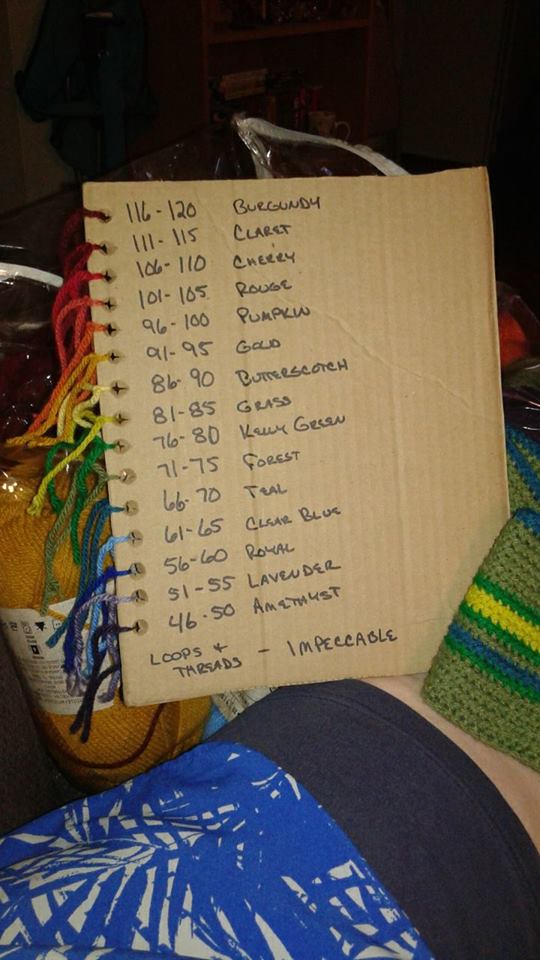 116-120 BURGUNDY
111-115 CLARET
106-110 CHERRY
101-105 ROUGE
96-100 PUMPKIN
91-95 GOLD
86-90 BUTTERSCOTCH
81-85 GRASS
76-80 KELLY GREEN
71-75 FOREST
66-70 TEAL
61-65 CLEAR BLUE
56-60 ROYAL
51-55 LAVENDER
46-50 AMETHYST
LOOPS &
THREADS - IMPECCABLE